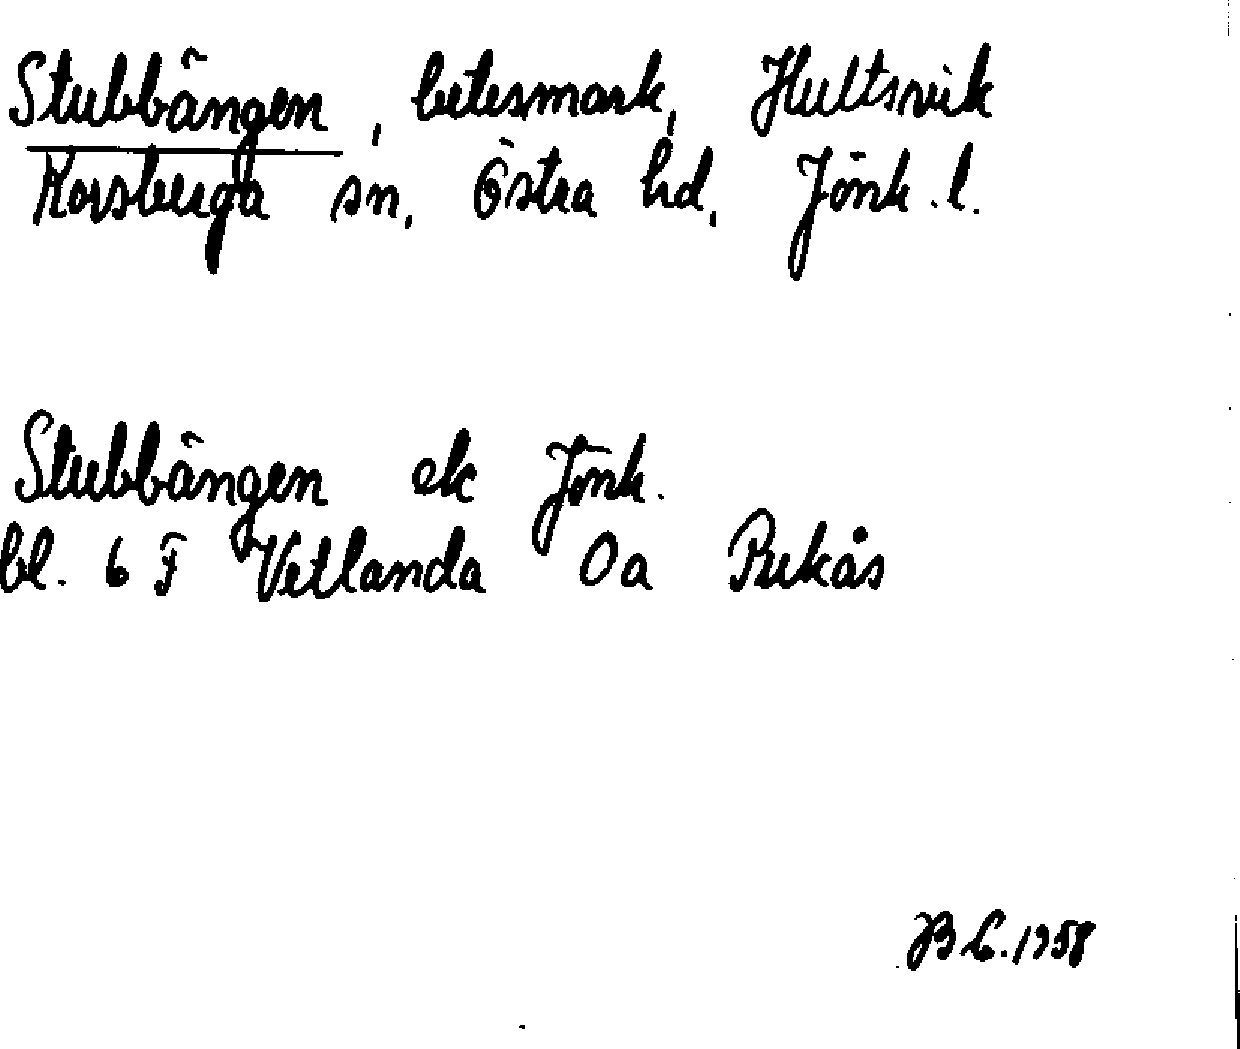 Stubbängen, betesmark, Hultsvik
Korsberga sn, Östra hd, Jönk. l.
Stubbängen ek Jönk.
bl. 6 F Vetlanda 0a Rukås
BL. 1958